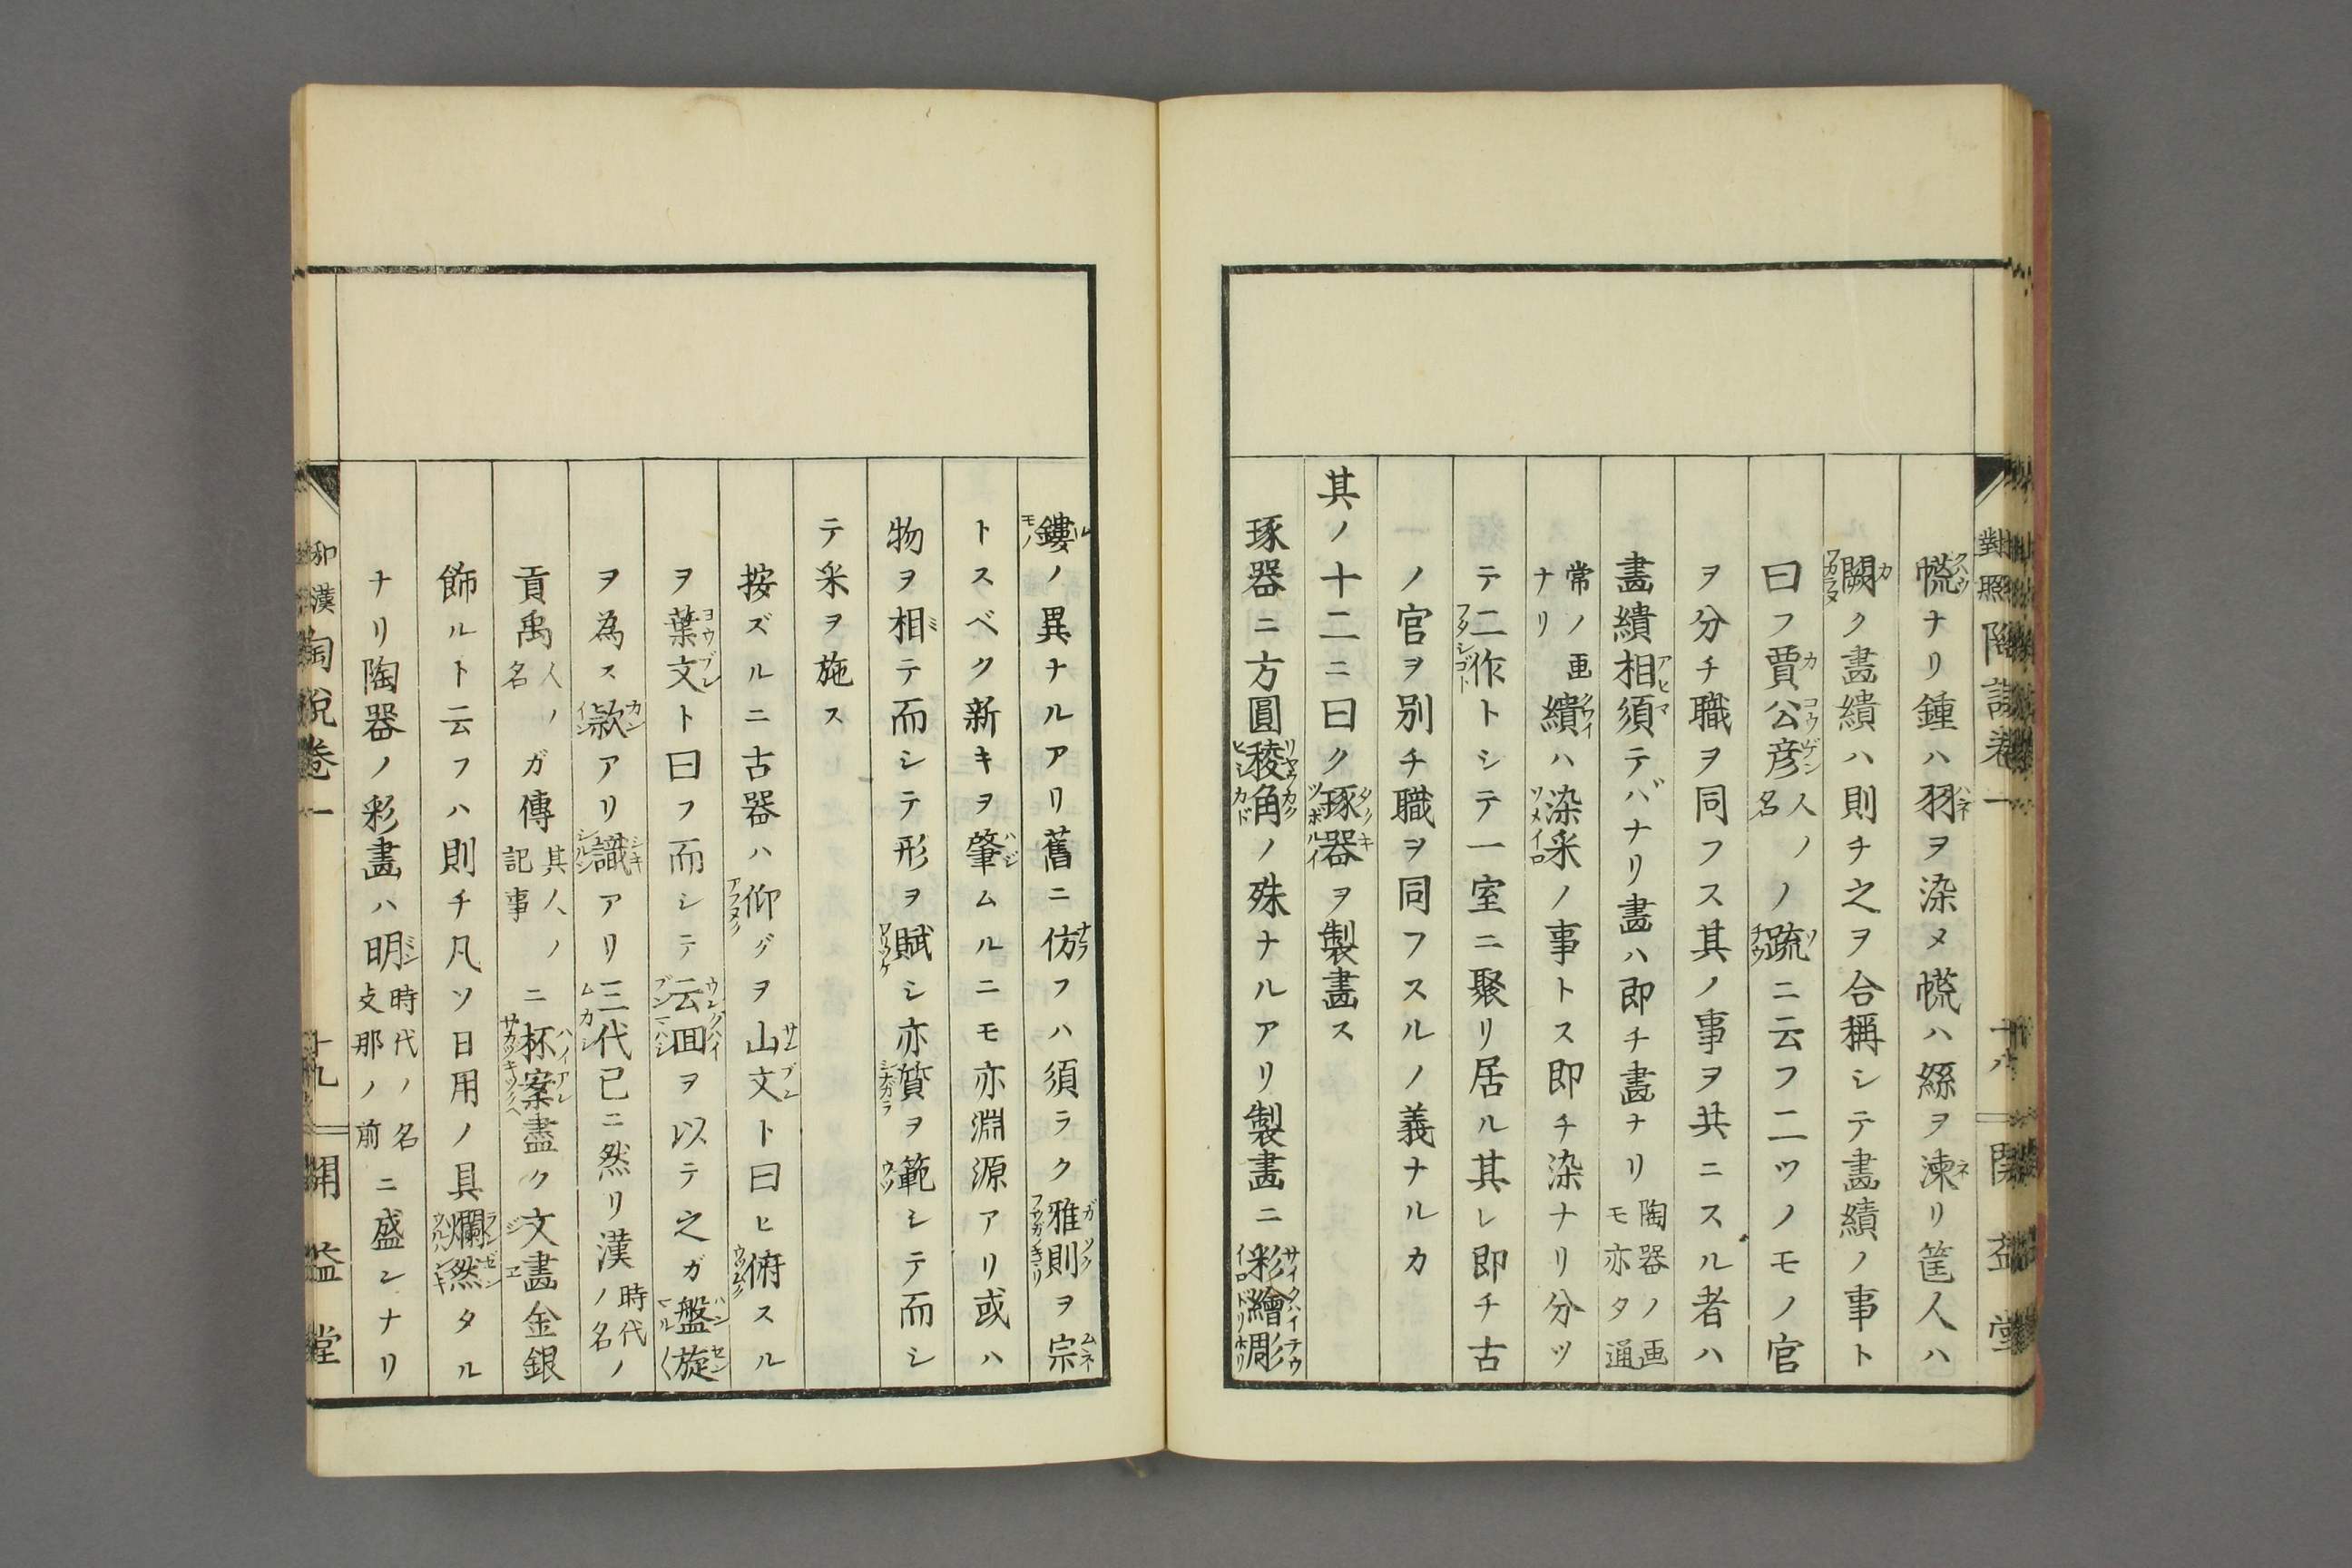 對照陶説卷一 十八 開益堂
㡃ナリ鍾ハ羽ヲ染メ㡃ハ絲ヲ湅リ筐人ハ
闕ク畫繢ハ則チ之ヲ合稱シテ畫繢ノ事ト
曰フ賈公彦人名ノノ疏ニ云フ二ツノモノ官
ヲ分チ職ヲ同フス其ノ事ヲ共ニスル者ハ
畫繢相須テバナリ畫ハ即チ畫ナリ陶器ノ画モ亦タ通
常ノ画ナリ繢ハ染采ノ事トス即チ染ナリ分ツ
テ二作トシテ一室ニ聚リ居ル其レ即チ古
ノ官ヲ別チ職ヲ同フスルノ義ナルカ
其ノ十二ニ曰ク琢器ヲ製畫ス
琢器ニ方圓稜角ノ殊ナルアリ製畫ニ彩繪彫
鏤ノ異ナルアリ舊ニ仿フハ須ラク雅則ヲ宗
トスベク新キヲ肇ムルニモ亦淵源アリ或ハ
物ヲ相テ而シテ形ヲ賦シ亦質ヲ範シテ而シ
テ采ヲ施ス
按ズルニ古器ハ仰グヲ山文ト曰ヒ俯スル
ヲ葉文ト曰フ而シテ云回ヲ以テ之ガ盤旋
ヲ為ス款アリ識アリ三代已ニ然リ漢時代ノノ名
貢禹人ノ名ガ傳其ノ人ノ記事ニ杯案盡ク文畫金銀
飾ルト云フハ則チ凡ソ日用ノ具爛然タル
ナリ陶器ノ彩畫ハ明時代ノ名攴那ノ前ニ盛ンナリ
和漢陶説卷一 十九 開益堂